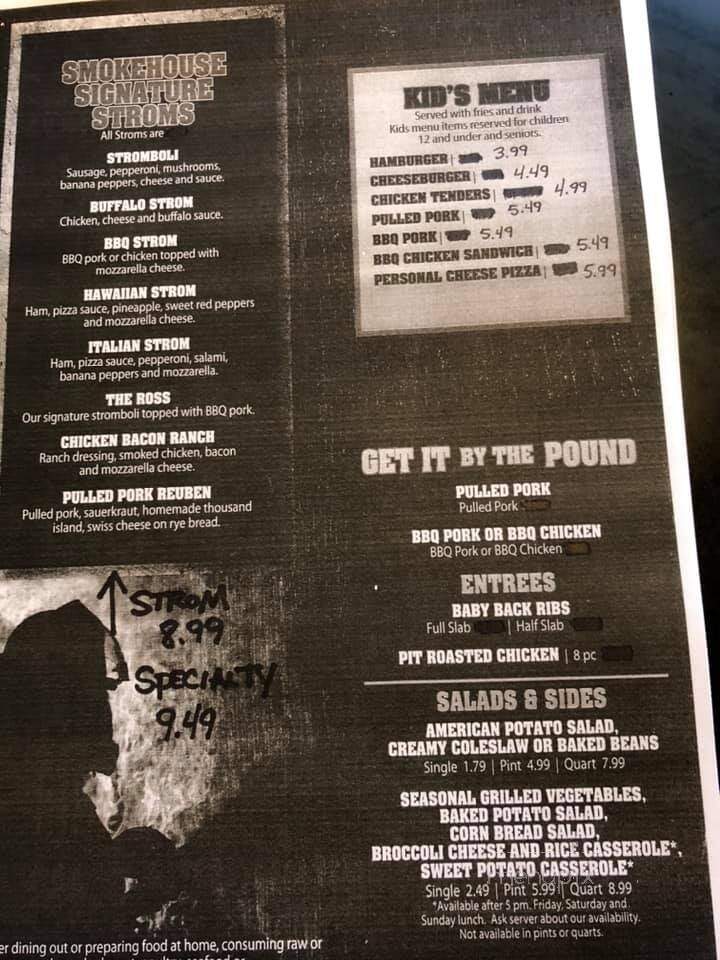 SMOKEHOUSE
SIGNATURE
STROMS
All Stroms are
STROMBOLI
Sausage, pepperoni, mushrooms,
banana peppers, cheese and sauce.
BUFFALO STROM
Chicken, cheese and buffalo sauce.
BBQ STROM
BBQ pork or chicken topped with
mozzarella cheese.
HAWAIIAN STROM
Ham, pizza sauce, pineapple, sweet red peppers
and mozzarella cheese.
ITALIAN STROM
Ham, pizza sauce, pepperoni, salami,
banana peppers and mozzarella.
THE ROSS
Our signature stromboli topped with BBQ pork.
CHICKEN BACON RANCH
Ranch dressing, smoked chicken, bacon
and mozzarella cheese.
PULLED PORK REUBEN
Pulled pork, sauerkraut, homemade thousand
island, swiss cheese on rye bread.
STROM
8.99
SPECIALTY
9.49
er dining out or preparing food at home, consuming raw or
KID'S MENU
Served with fries and drink
Kids menu items reserved for children
12 and under and seniors.
HAMBURGER | 3.99
CHEESEBURGER | 4.49
CHICKEN TENDERS | 4.99
PULLED PORK | 5.49
BBQ PORK | 5.49
BBQ CHICKEN SANDWICH | 5.49
PERSONAL CHEESE PIZZA | 5.99
GET IT BY THE POUND
PULLED PORK
Pulled Pork
BBQ PORK OR BBQ CHICKEN
BBQ Pork or BBQ Chicken
ENTREES
BABY BACK RIBS
Full Slab | Half Slab
PIT ROASTED CHICKEN | 8 pc
SALADS & SIDES
AMERICAN POTATO SALAD,
CREAMY COLESLAW OR BAKED BEANS
Single 1.79 | Pint 4.99 | Quart 7.99
SEASONAL GRILLED VEGETABLES,
BAKED POTATO SALAD,
CORN BREAD SALAD,
BROCCOLI CHEESE AND RICE CASSEROLE*,
SWEET POTATO CASSEROLE*
Single 2.49 | Pint 5.99 | Quart 8.99
*Available after 5 pm. Friday, Saturday and
Sunday lunch. Ask server about our availability.
Not available in pints or quarts.